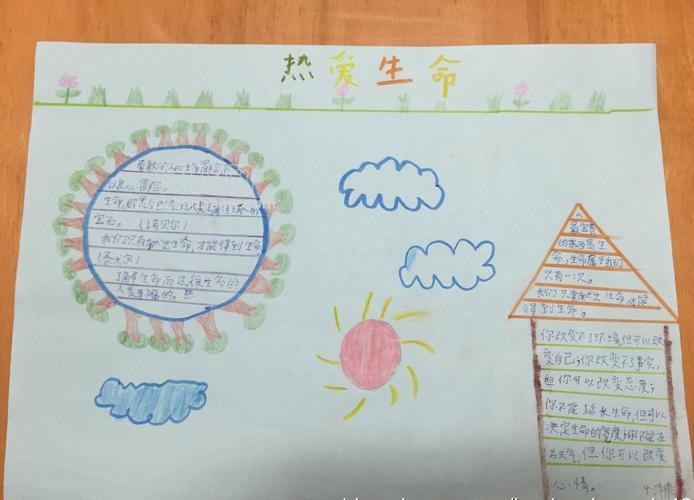 热爱生命
勇敢的人以生命冒险,不
以良心冒险。
生命,那是自然会给人类去雕琢的
宝石。(诺贝尔)
我们只有献出生命,才能得到生命
(泰戈尔)
生命而
人是幸福的。
人
最宝贵
的东西是生
命,生命属于我们
只有一次。
我们只有献出生命,才能
得到生命。
你改变不了环境,但可以改
变自己;你改变不了事实,
但你可以改变态度;
你不能延长生命,但可以
决定生命的宽度;你不能左
右天气,但你可以改变
心情。